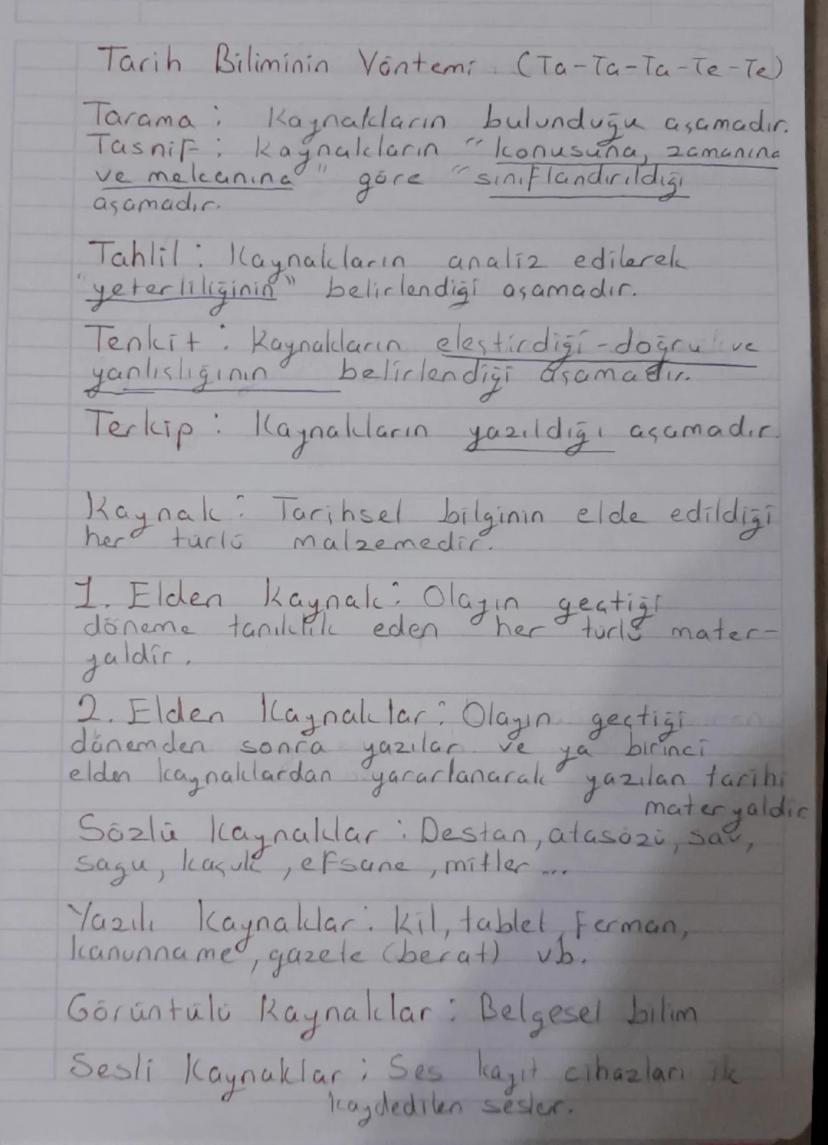 Tarih Biliminin Yöntemi (Ta-Ta-Ta-Te-Te)
Tarama : Kaynakların bulunduğu aşamadır.
Tasnif : Kaynakların "konusuna, zamanına
ve mekanına" göre "sınıflandırıldığı
aşamadır.
Tahlil : Kaynakların analiz edilerek
"yeterliliğinin" belirlendiği aşamadır.
Tenkit : Kaynakların eleştirdiği-doğru ve
yanlışlığının belirlendiği aşamadır.
Terkip : Kaynakların yazıldığı aşamadır.
Kaynak : Tarihsel bilginin elde edildiği
her türlü malzemedir.
1. Elden Kaynak : Olayın geçtiği
döneme tanıklık eden her türlü mater-
yaldir.
2. Elden Kaynaklar : Olayın geçtiği
dönemden sonra yazılar ve ya birinci
elden kaynaklardan yararlanarak yazılan tarihi
materyaldir
Sözlü Kaynaklar : Destan, atasözü, sav,
sagu, koşuk, efsane, mitler ...
Yazılı Kaynaklar : Kil, tablet, ferman,
kanunname, gazete (berat) vb.
Görüntülü Kaynaklar : Belgesel bilim
Sesli Kaynaklar : Ses kayıt cihazları ile
kaydedilen sesler.